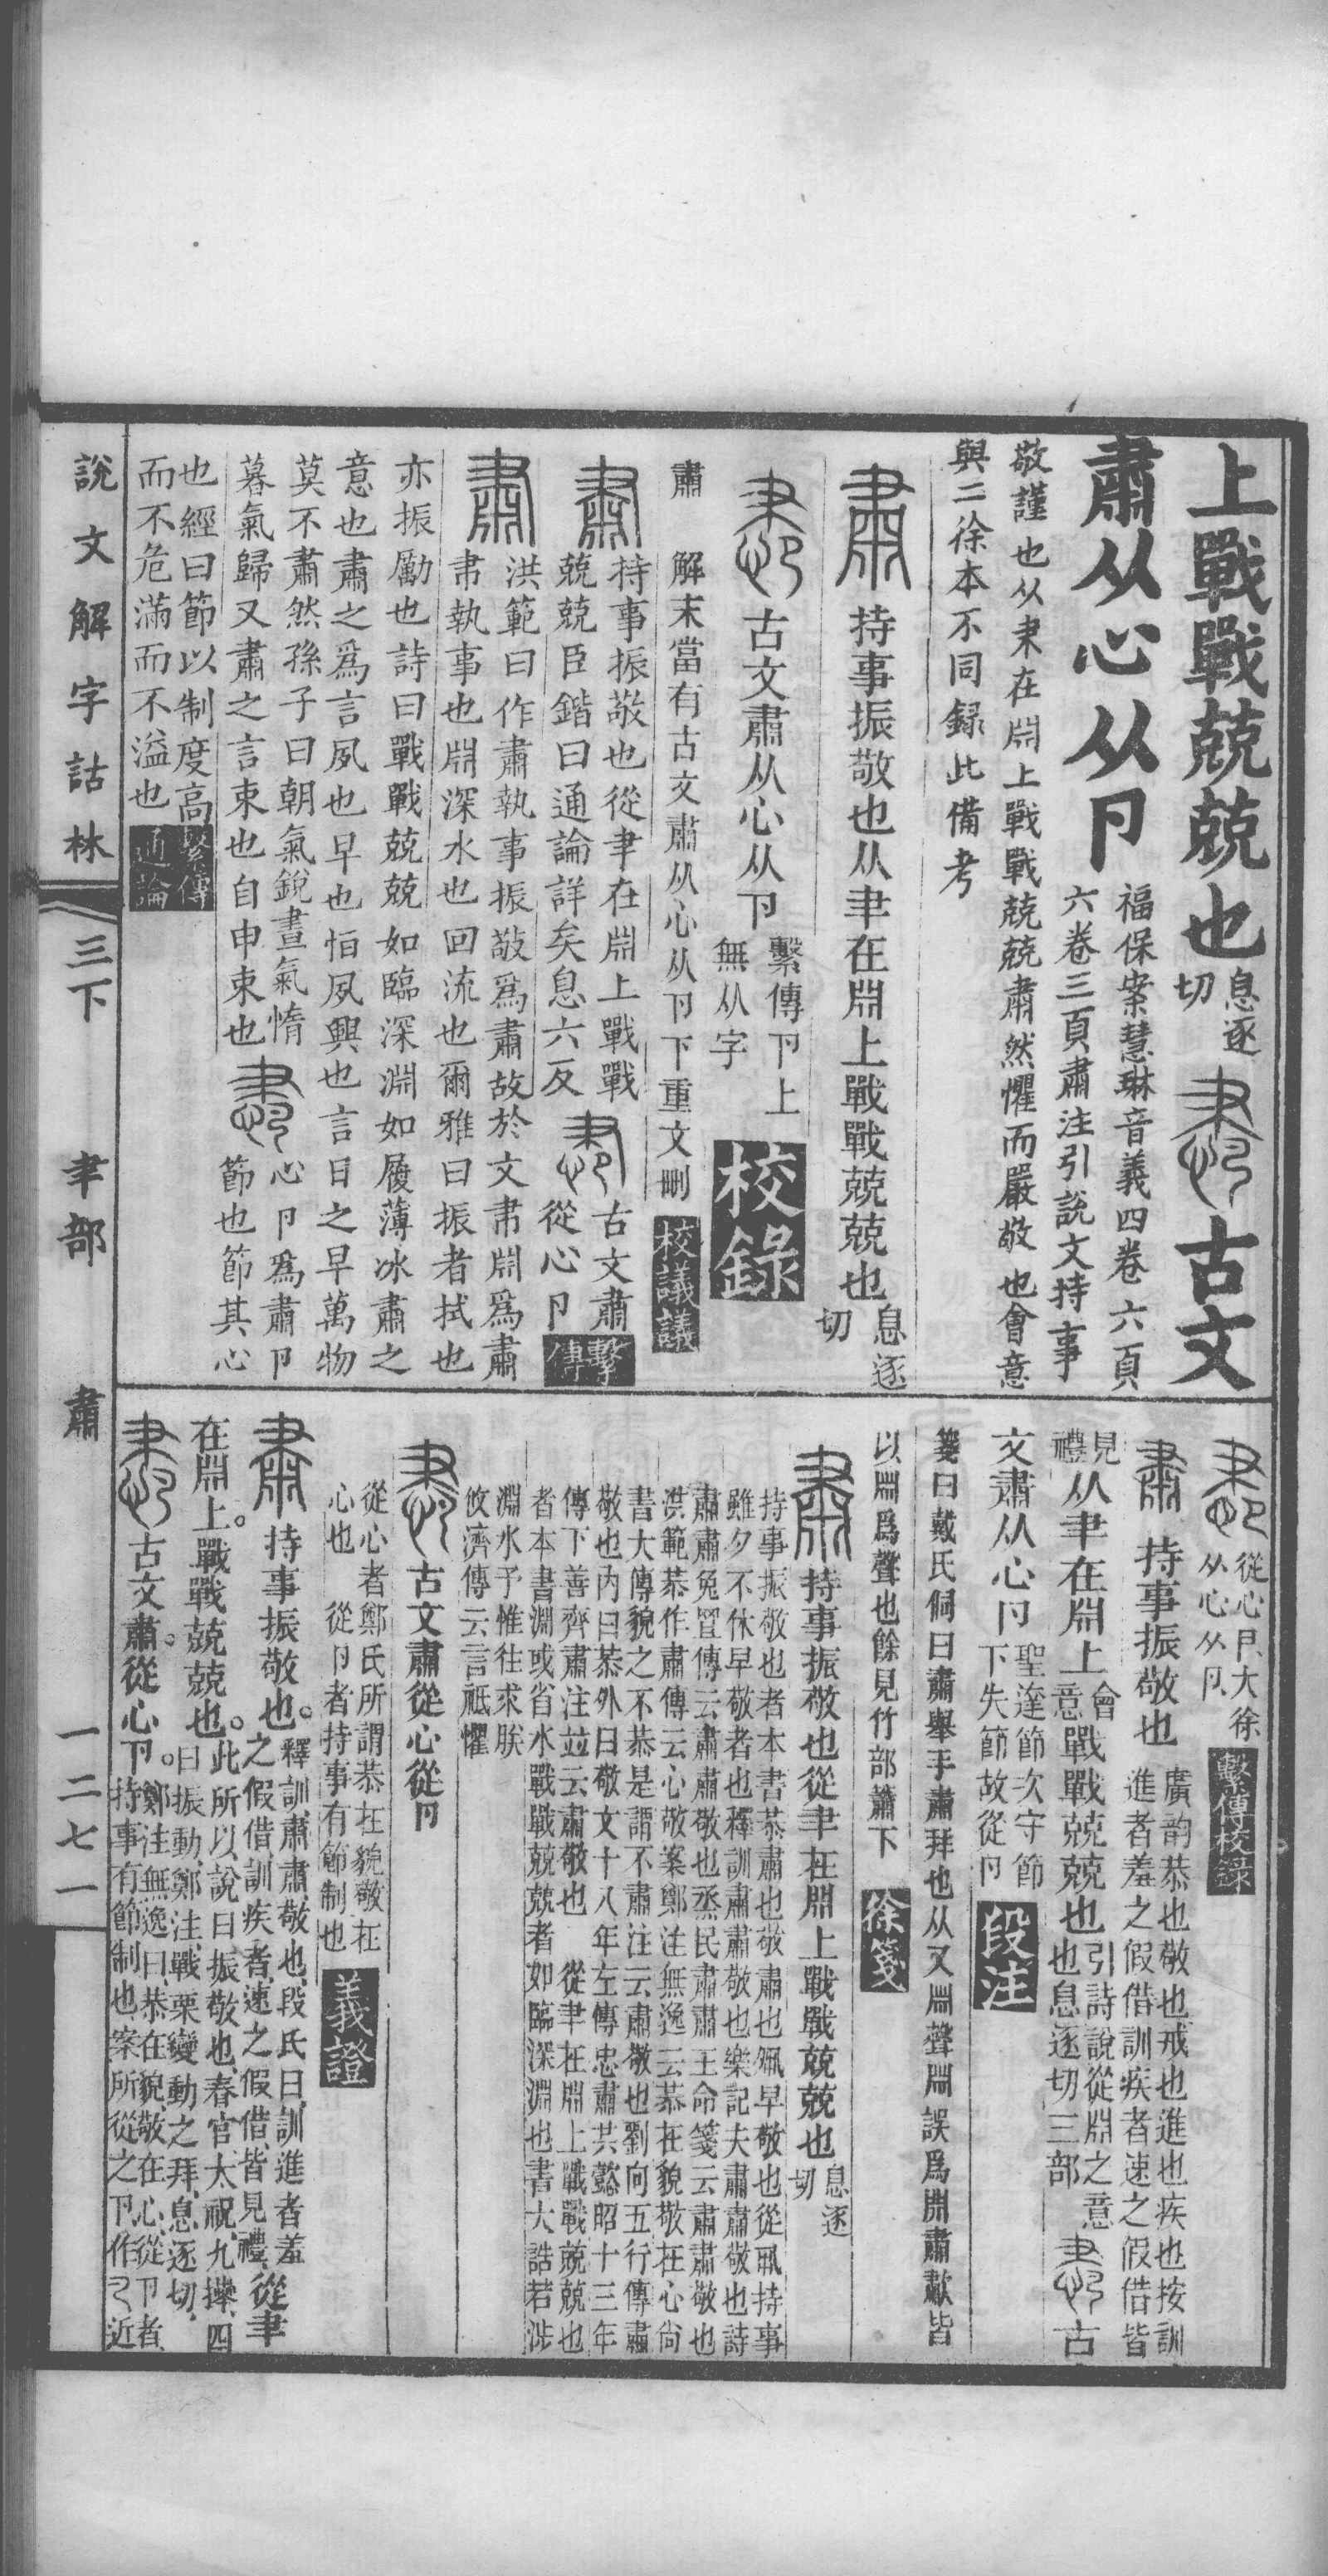 上戰戰兢兢也息逐切古文
肅从心从卪福保案慧琳音義四卷六頁
六卷三頁肅注引說文持事
敬謹也从聿在𣶒上戰戰兢兢肅然懼而嚴敬也會意
與二徐本不同錄此備考
肅持事振敬也从聿在𣶒上戰戰兢兢也息逐切
古文肅从心从卪繫傳卪上無从字校錄
肅 解末當有古文肅从心从卪下重文刪校議議
肅持事振敬也從聿在𣶒上戰戰
兢兢臣鍇曰通論詳矣息六反古文肅從心卪繫傳
肅洪範曰作肅執事振敬爲肅故於文肀𣶒爲肅
肀執事也𣶒深水也回流也爾雅曰振者拭也
亦振勵也詩曰戰戰兢兢如臨深淵如履薄冰肅之
意也肅之爲言夙也早也怕夙興也言日之早萬物
莫不肅然孫子曰朝氣銳晝氣惰
暮氣歸又肅之言束也自申束也心卪爲肅卪
節也節其心
也經曰節以制度高
而不危滿而不溢也繫傳通論
從心卪大徐
从心从卪繫傳校錄
肅持事振敬也廣韵恭也敬也戒也進也疾也按訓
進者羞之假借訓疾者速之假借皆
見禮从聿在𣶒上會意戰戰兢兢也引詩說從淵之意
也息逐切三部古
文肅从心卪聖達節次守節
下失節故從卪段注
箋曰戴氏侗曰肅舉手肅拜也从又𣶒聲𣶒誤爲𣶒肅歗皆
以𣶒爲聲也餘見竹部簫下徐箋
肅持事振敬也從聿在𣶒上戰戰兢兢也息逐切
持事振敬也者本書恭肅也敬肅也夙早敬也從丮持事
雖夕不休早敬者也釋訓肅肅敬也樂記夫肅肅敬也詩
肅肅兔罝傳云肅肅敬也烝民肅肅王命箋云肅肅敬也
洪範恭作肅傳云心敬案鄭注無逸云恭在貌敬在心尙
書大傳貌之不恭是謂不肅注云肅敬也劉向五行傳肅
敬也內曰恭外曰敬文十八年左傳忠肅共懿昭十三年
傳下善齊肅注並云肅敬也 從聿在𣶒上戰戰兢兢也
者本書淵或省水戰戰兢兢者如臨深淵也書大誥若涉
淵水予惟往求朕
攸濟傳云言祗懼
古文肅從心從卪
從心者鄭氏所謂恭在貌敬在
心也 從卪者持事有節制也義證
肅持事振敬也。釋訓肅肅敬也段氏曰訓進者羞
之假借訓疾者速之假借皆見禮從聿
在𣶒上。戰戰兢兢也。此所以說曰振敬也春官大祝九𢷎四
曰振動鄭注戰栗變動之拜息逐切
古文肅。從心卪。鄭注無逸曰恭在貌敬在心從卪者
持事有節制也案所從之卪作㔾近
說文解字詁林 三下 聿部 肅 一二七一